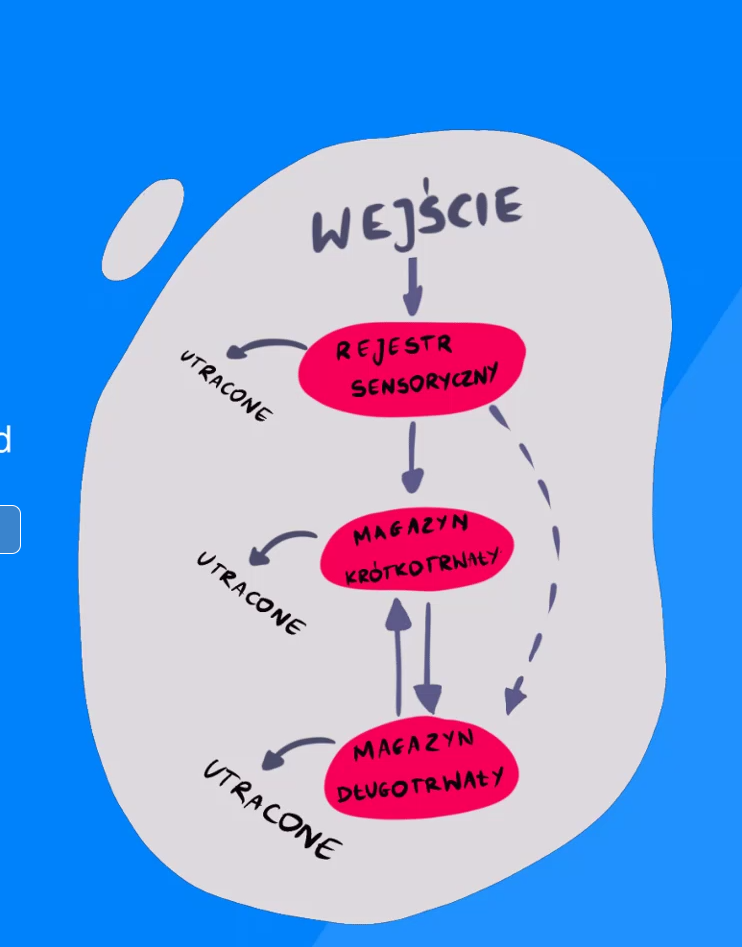 WEJŚCIE
REJESTR
SENSORYCZNY
UTRACONE
d
MAGAZYN
KRÓTKOTRWAŁY
UTRACONE
MAGAZYN
DŁUGOTRWAŁY
UTRACONE